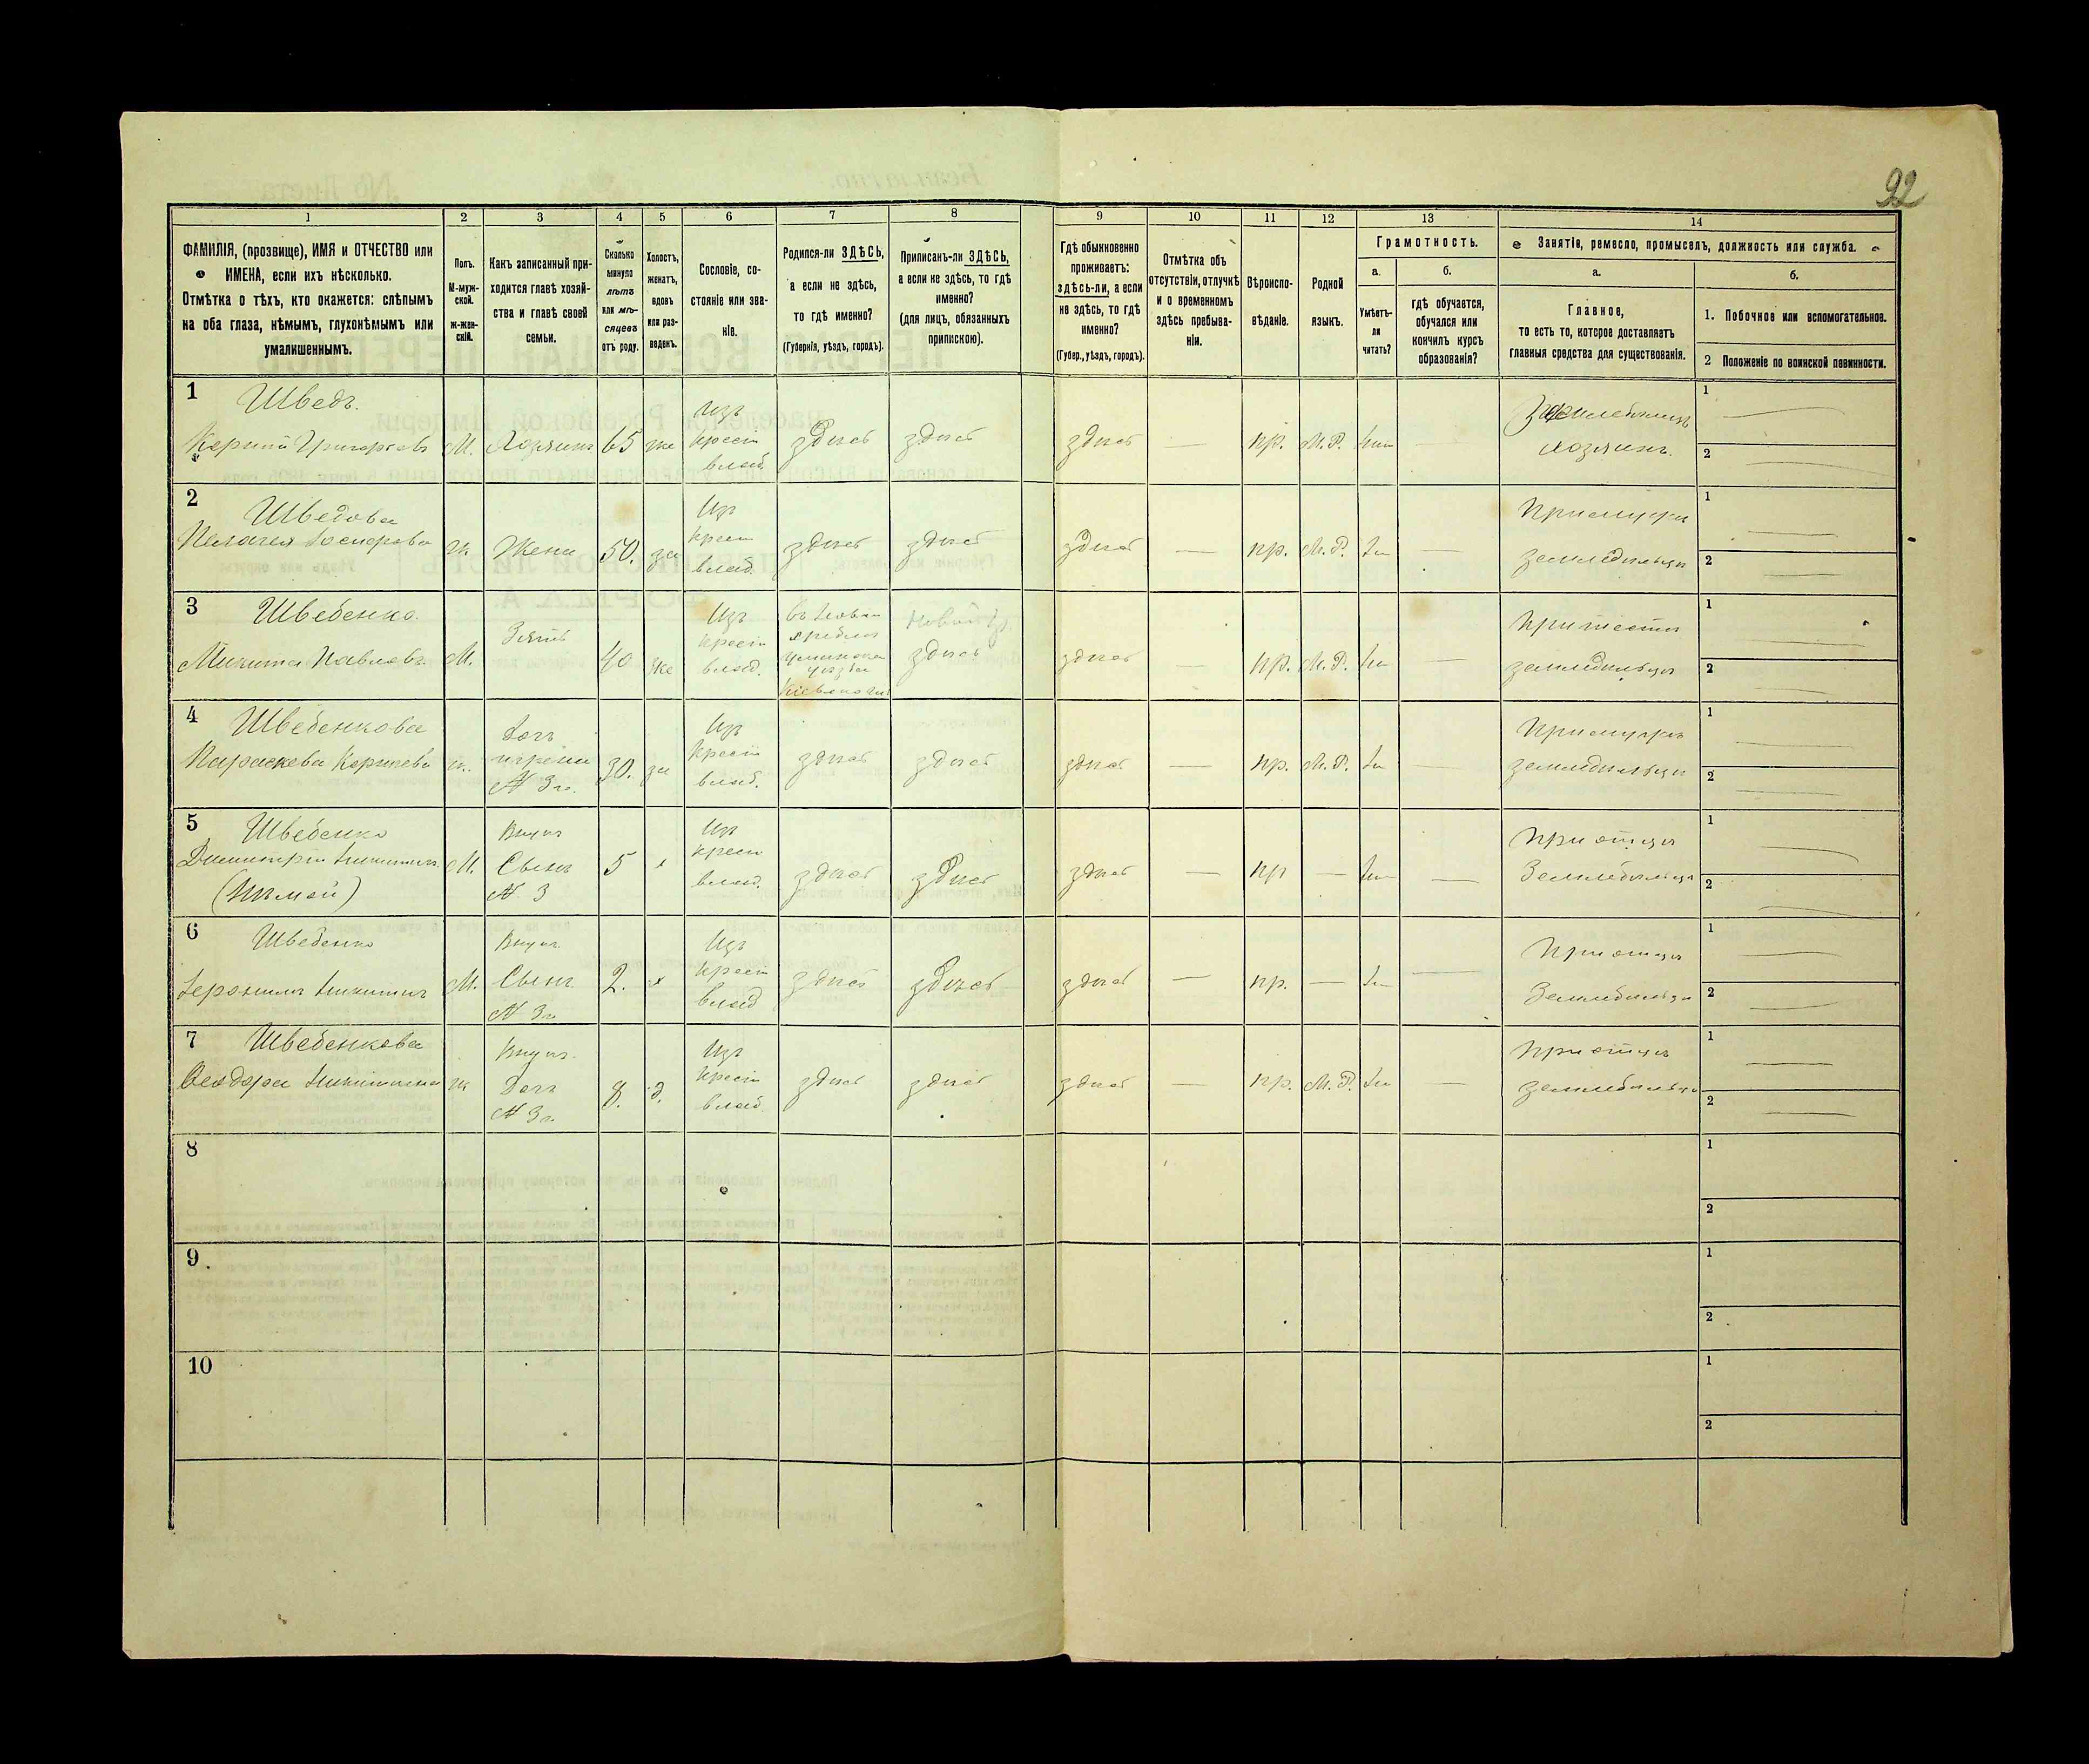 92
1 2 3 4 5 6 7 8 9 10 11 12 13 14
ФАМИЛІЯ, (прозвище), ИМЯ и ОТЧЕСТВО или
ИМЕНА, если ихъ нѣсколько.
Отмѣтка о тѣхъ, кто окажется: слѣпымъ
на оба глаза, нѣмымъ, глухонѣмымъ или
умалишеннымъ.
Полъ.
М-муж-
ской.
ж-жен-
скій.
Какъ записанный при-
ходится главѣ хозяй-
ства и главѣ своей
семьи.
Сколько
минуло
лѣтъ
или мѣ-
сяцевъ
отъ роду.
Холостъ,
женатъ,
вдовъ
или раз-
веденъ.
Сословіе, со-
стояніе или зва-
ніе.
Родился-ли ЗДѢСЬ,
а если не здѣсь,
то гдѣ именно?
(Губернія, уѣздъ, городъ).
Приписанъ-ли ЗДѢСЬ,
а если не здѣсь, то гдѣ
именно?
(для лицъ, обязанныхъ
припискою).
Гдѣ обыкновенно
проживаетъ:
здѣсь-ли, а если
не здѣсь, то гдѣ
именно?
(Губер., уѣздъ, городъ).
Отмѣтка объ
отсутствіи, отлучкѣ
и о временномъ
здѣсь пребыва-
ніи.
Вѣроиспо-
вѣданіе.
Родной
языкъ.
Грамотность.
а.
Умѣетъ-
ли
читать?
б.
гдѣ обучается,
обучался или
кончилъ курсъ
образованія?
Занятіе, ремесло, промыселъ, должность или служба.
а.
Главное,
то есть то, которое доставляетъ
главныя средства для существованія.
б.
1. Побочное или вспомогательное.
2 Положеніе по воинской повинности.
1
Шведъ.
М. Хозяинъ 65 же
Изъ
крест
влад.
здѣсь здѣсь здѣсь — пр. М.Р. —
хозяинъ.
1 —
2 —
2
Шведова
Пелагея
ж Жена 50. за
Изъ
крест
влад.
здѣсь здѣсь здѣсь — пр. М.Р. —
При мужѣ
земледѣльцѣ
1 —
2 —
3
Шведенко.
Микита Павловъ
М. Зять 40 же
Изъ
крест
влад.
уѣзда
здѣсь здѣсь — пр. М.Р. —
При тестѣ
земледѣльцѣ
1 —
2 —
4
Шведенкова
Параскева
ж.
№ 3го.
30. за
Изъ
крест
влад.
здѣсь здѣсь здѣсь — пр. М.Р. —
При мужѣ
земледѣльцѣ
1 —
2 —
5
Шведенко
Димитрій Никитинъ
(Нѣмой)
М.
Внукъ
Сынъ
№ 3
5 х
Изъ
крест
влад.
здѣсь здѣсь здѣсь — пр — —
При отцѣ
Земледѣльцѣ
1 —
2 —
6
Шведенко
Никитинъ
М.
Внукъ
Сынъ
№ 3го
2. х
Изъ
крест
влад
здѣсь здѣсь здѣсь — пр. — —
При отцѣ
Земледѣльцѣ
1 —
2 —
7
Шведенкова
Ѳеодора Никитина
ж
Внука.
Дочь
№ 3го.
8. д.
Изъ
крест
влад
здѣсь здѣсь здѣсь — пр. М.Р. —
При отцѣ
земледѣльцѣ
1 —
2 —
8
1
2
9
1
2
10
1
2